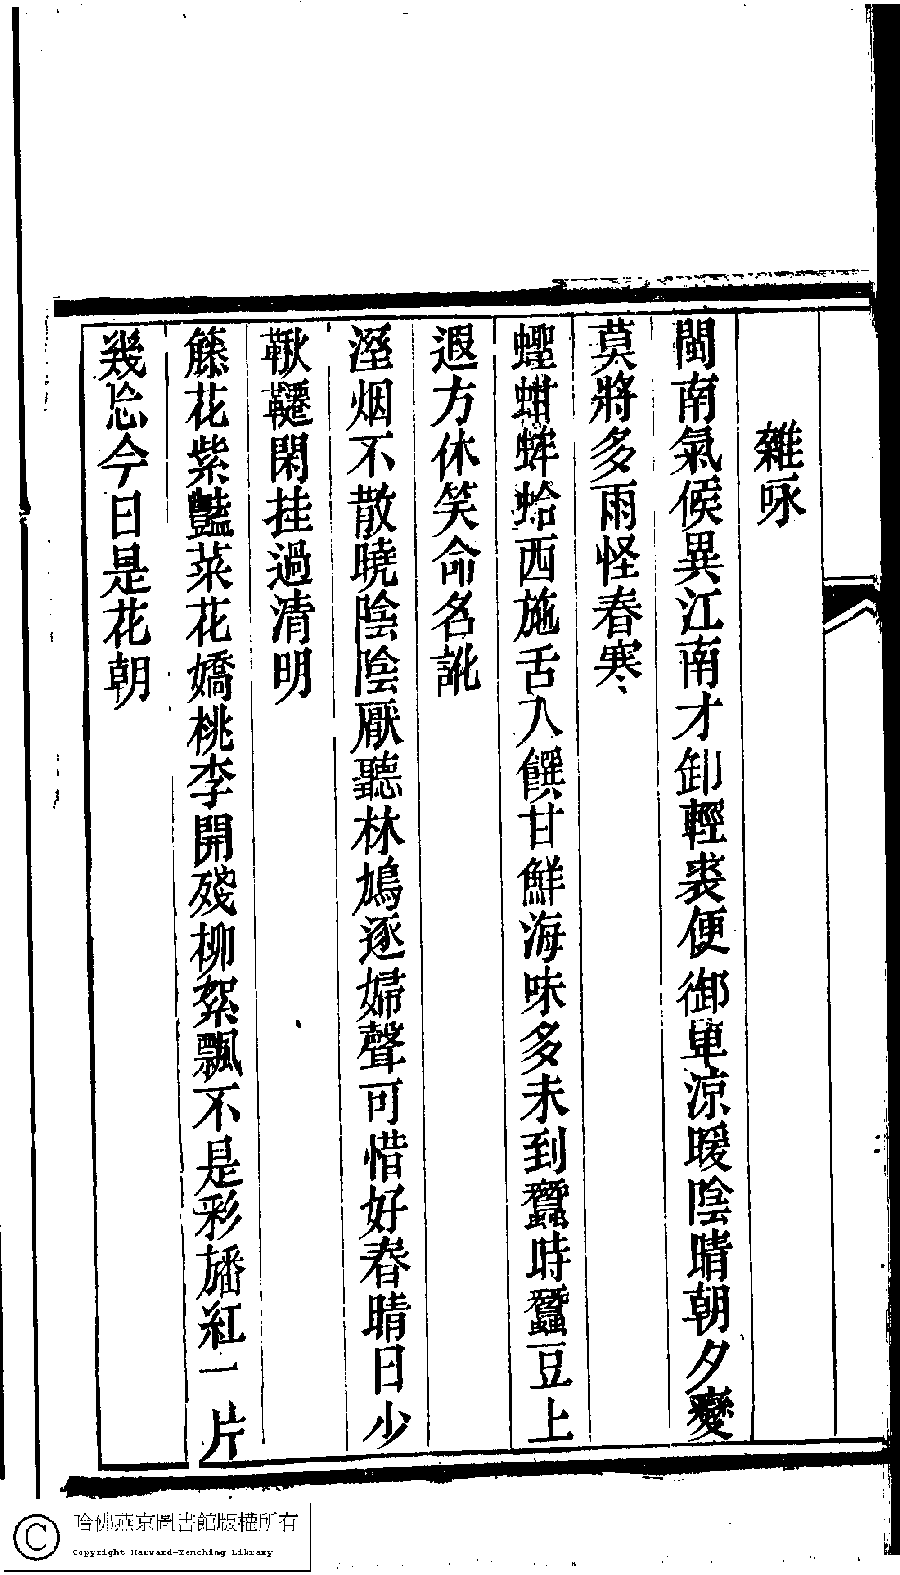 雜咏
閩南氣候異江南才卸輕裘便御單涼暖陰晴朝夕變
莫將多雨怪春寒
蟶蚶蜯蛤西施舌入饌甘鮮海味多未到蠶時蠶豆上
遐方休笑命名訛
溼烟不散曉陰陰厭聽林鳩逐婦聲可惜好春晴日少
鞦韆閑挂過清明
籐花紫豔菜花嬌桃李開殘柳絮飄不是彩旛紅一片
幾忘今日是花朝
哈佛燕京圖書館版權所有
Copyright Harvard-Yenching Library